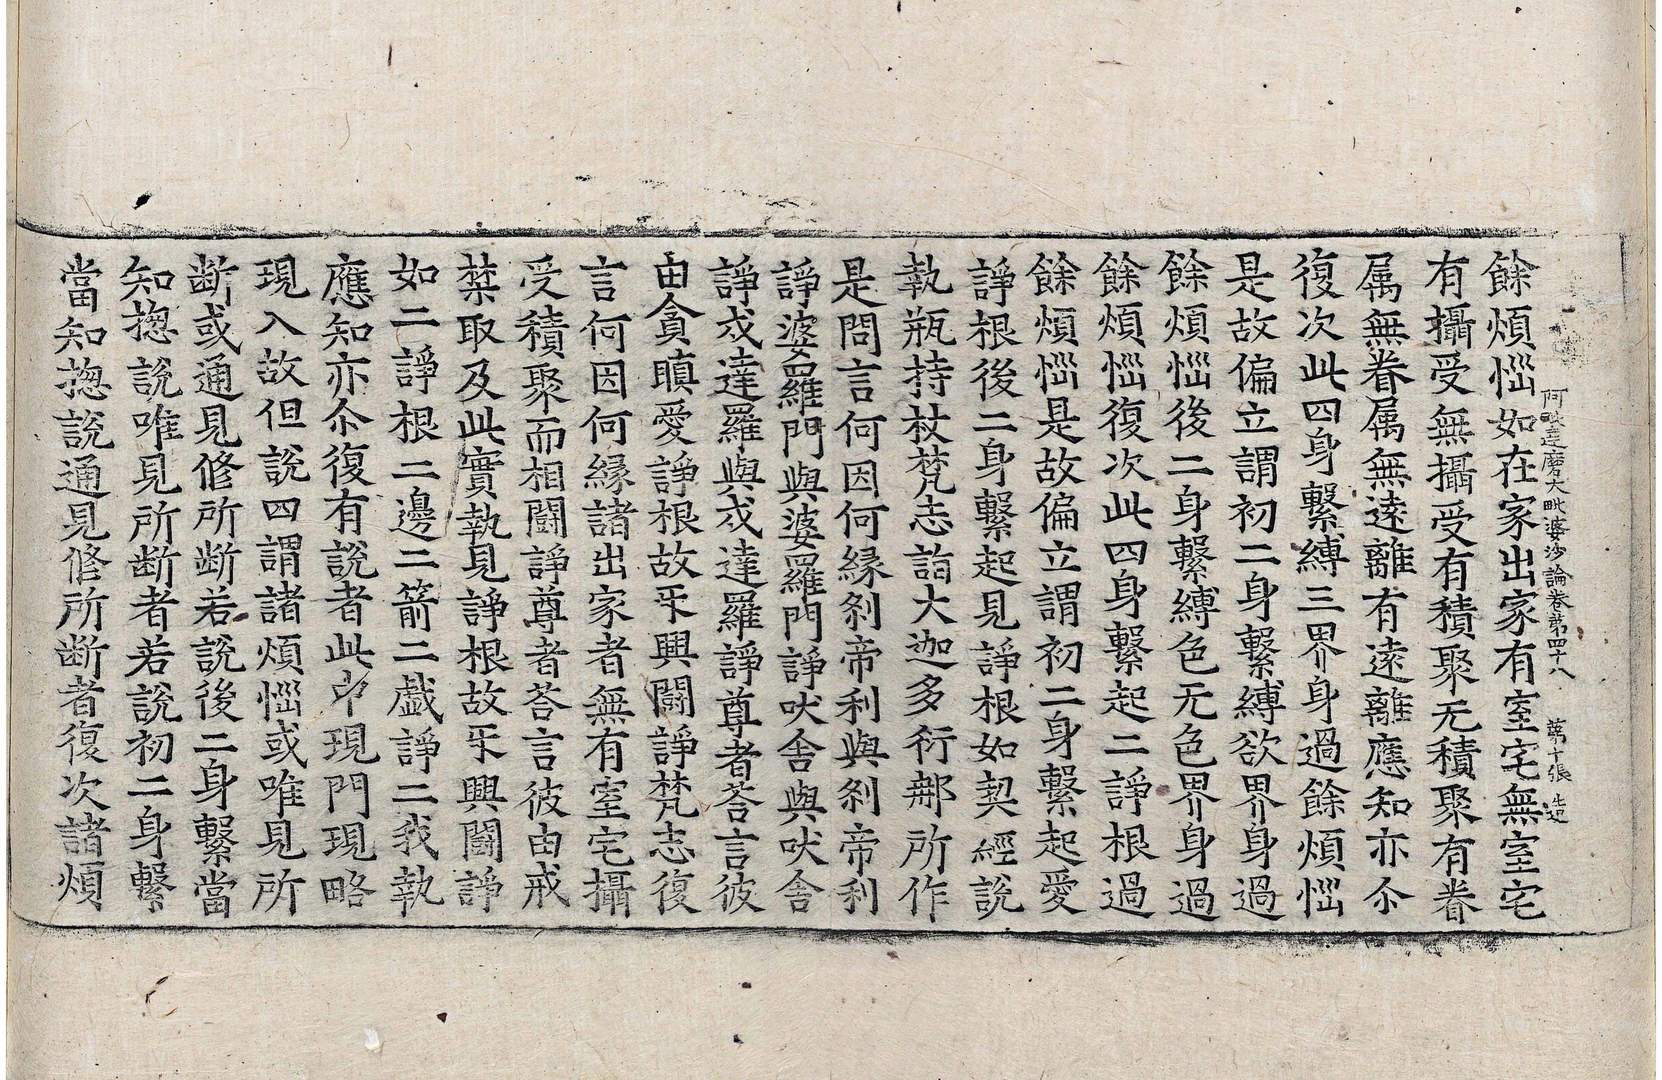 阿毗達磨大毗婆沙論卷第四十八　第十張　造
餘煩惱如在家出家有室宅無室宅
有攝受無攝受有積聚无積聚有眷
属無眷属無遠離有遠離應知亦尒
復次此四身繫縛三界身過餘煩惱
是故偏立謂初二身繫縛欲界身過
餘煩惱後二身繫縛色无色界身過
餘煩惱復次此四身繫起二諍根過
餘煩惱是故偏立謂初二身繫起愛
諍根後二身繫起見諍根如契經說
執瓶持杖梵志詣大迦多衍那所作
是問言何因何緣刹帝利與刹帝利
諍婆羅門與婆羅門諍吠舍與吠舍
諍戍達羅與戍達羅諍尊者荅言彼
由貪瞋愛諍根故㸦興鬪諍梵志復
言何因何緣諸出家者無有室宅攝
受積聚而相鬪諍尊者荅言彼由戒
禁取及此實執見諍根故㸦興鬪諍
如二諍根二邊二箭二戱諍二我執
應知亦尒復有說者此中現門現略
現入故但說四謂諸煩惱或唯見所
断或通見修所断若說後二身繫當
知揔說唯見所断者若說初二身繫
當知揔說通見修所断者復次諸煩